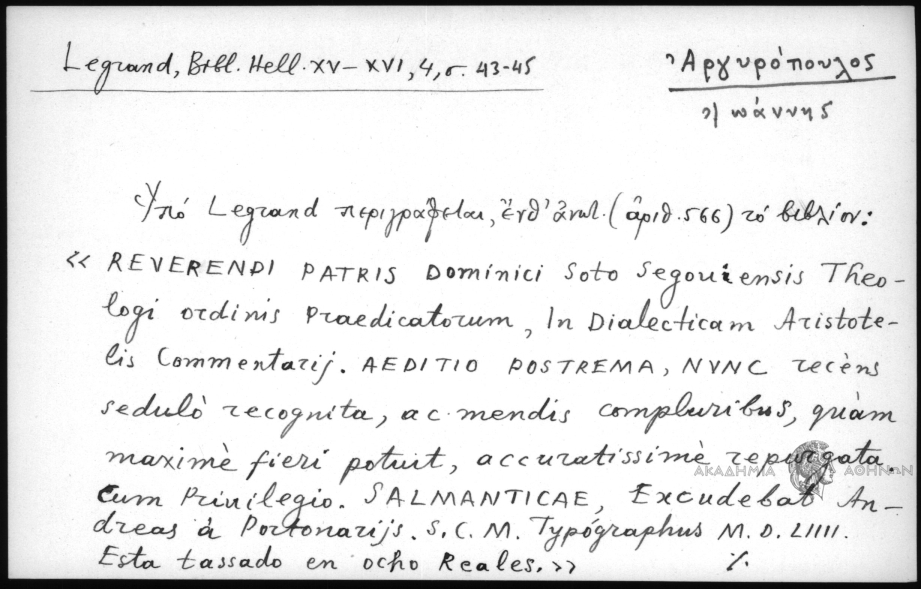 Legrand, Bibl. Hell. XV-XVI, 4, σ. 43-45
Ἀργυρόπουλος
Ἰωάννης
Ὑπό Legrand περιγράφεται, ἔνθ' ἀνωτ. (ἀριθ. 566) τό βιβλίον:
« REVERENDI PATRIS Dominici Soto Segouiensis Theo-
logi ordinis Praedicatorum, In Dialecticam Aristote-
lis Commentarij. AEDITIO POSTREMA, NVNC recèns
sedulò recognita, ac mendis compluribus, quàm
maximè fieri potuit, accuratissimè repurgata.
ΑΚΑΔΗΜΙΑ ΑΘΗΝΩΝ
cum Priuilegio. SALMANTICAE, Excudebat An-
dreas à Portonarijs. S. C. M. Typógraphus M. D. LIIII.
Esta tassado en ocho Reales.» ./.